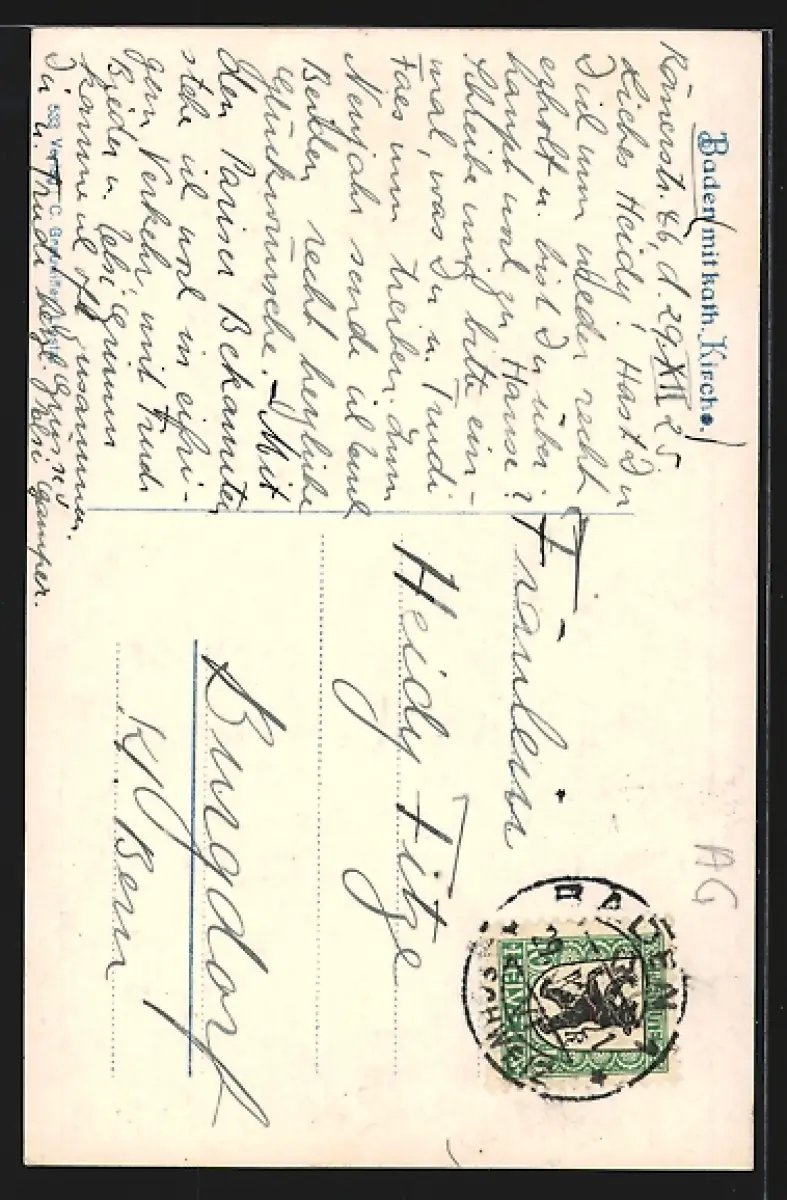 Baden mit kath. Kirche.
Römerstr. d. 29. XII 25
Liebes Heidy! Hast Du
Dich nun wieder recht
erholt u. bist Du über-
haupt noch zu Hause?
Schreibe mir bitte ein-
mal, was Du u. Trudi
nun treiben. Zum
Neujahr sende ich Euch
Beiden recht herzliche
Glückwünsche. Mit
den Pariser Bekannten
stehe ich noch in eifri-
gem Verkehr, mit Trudi
Bieder u. Elsi Grimm
komme ich oft zusammen.
Dir u. Trudi herzl. Grüsse
Elsi Gamper.
Fräulein
Heidy Fitze
Burgdorf
Kt Bern
AG
BADEN
HELVETIA